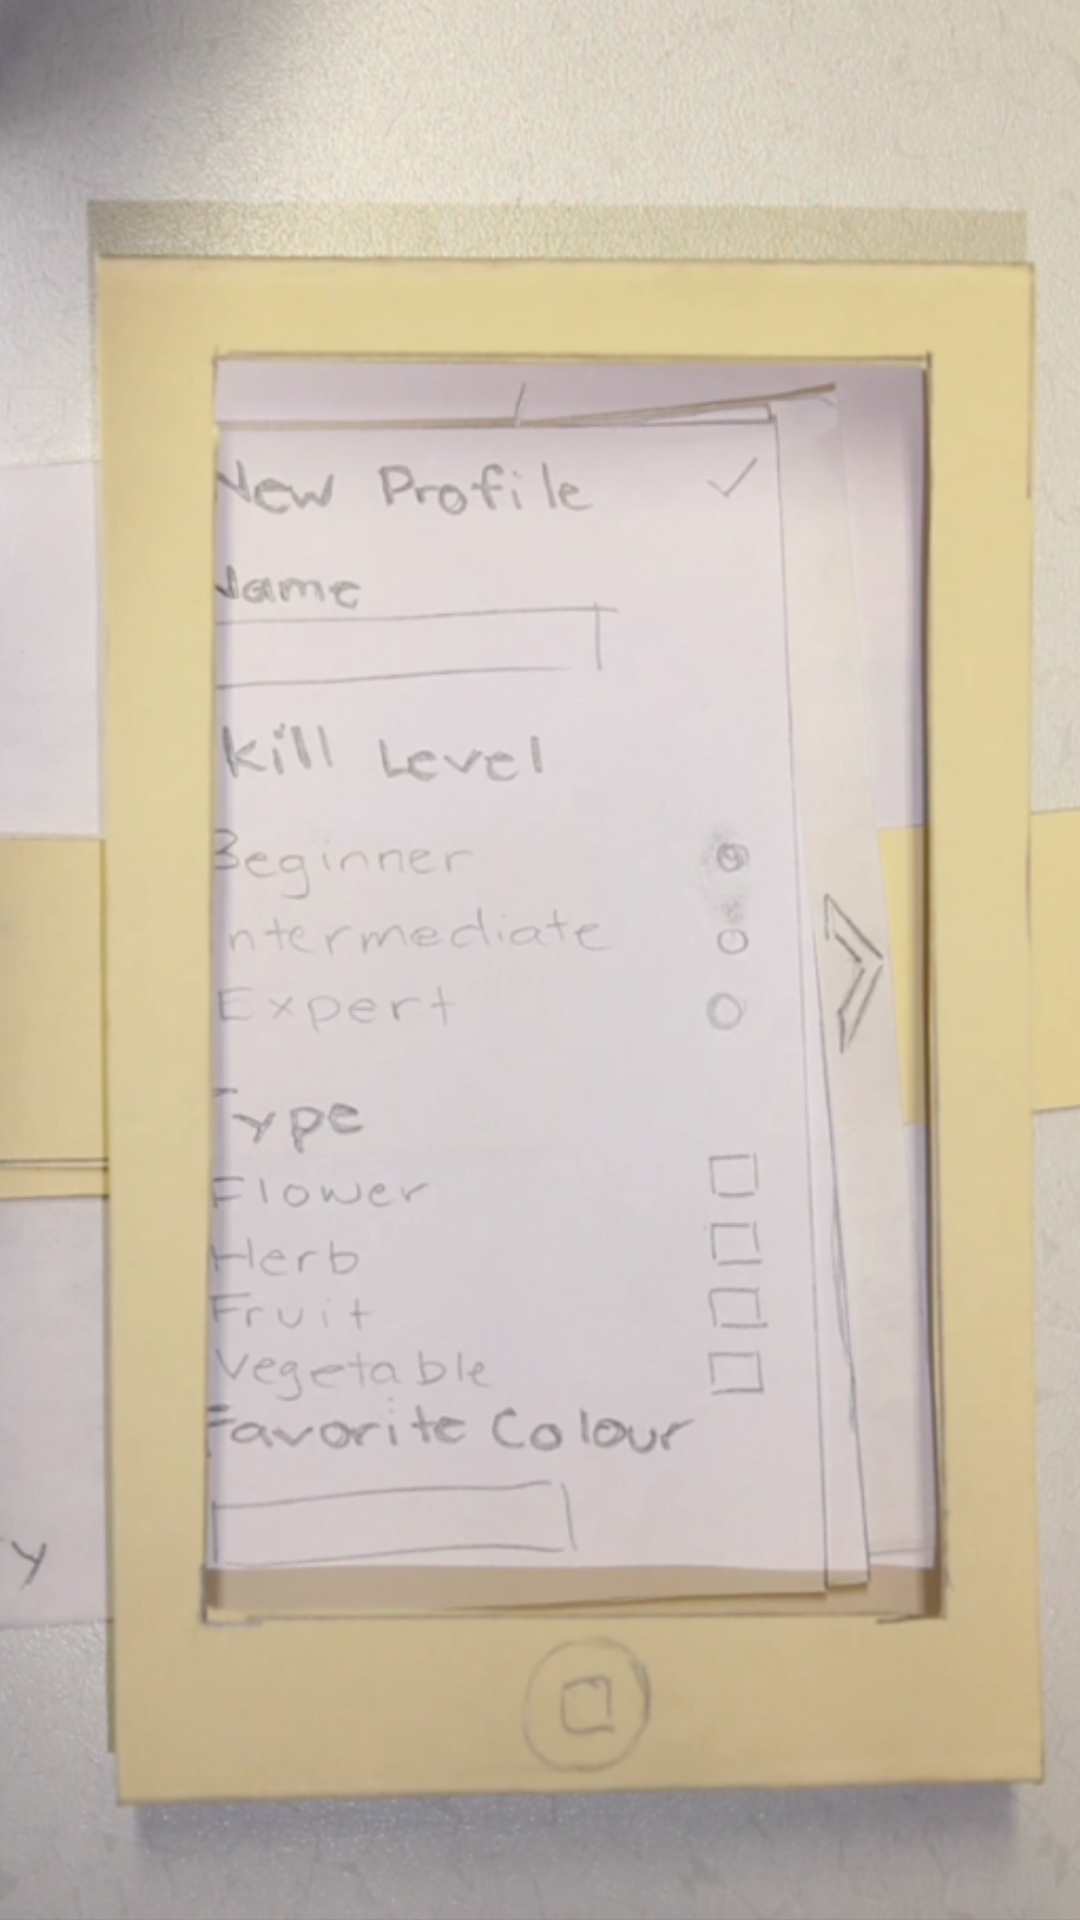 New Profile
Name
kill Level
Beginner
Intermediate
Expert
Type
Flower
Herb
Fruit
Vegetable
Favorite Colour
y